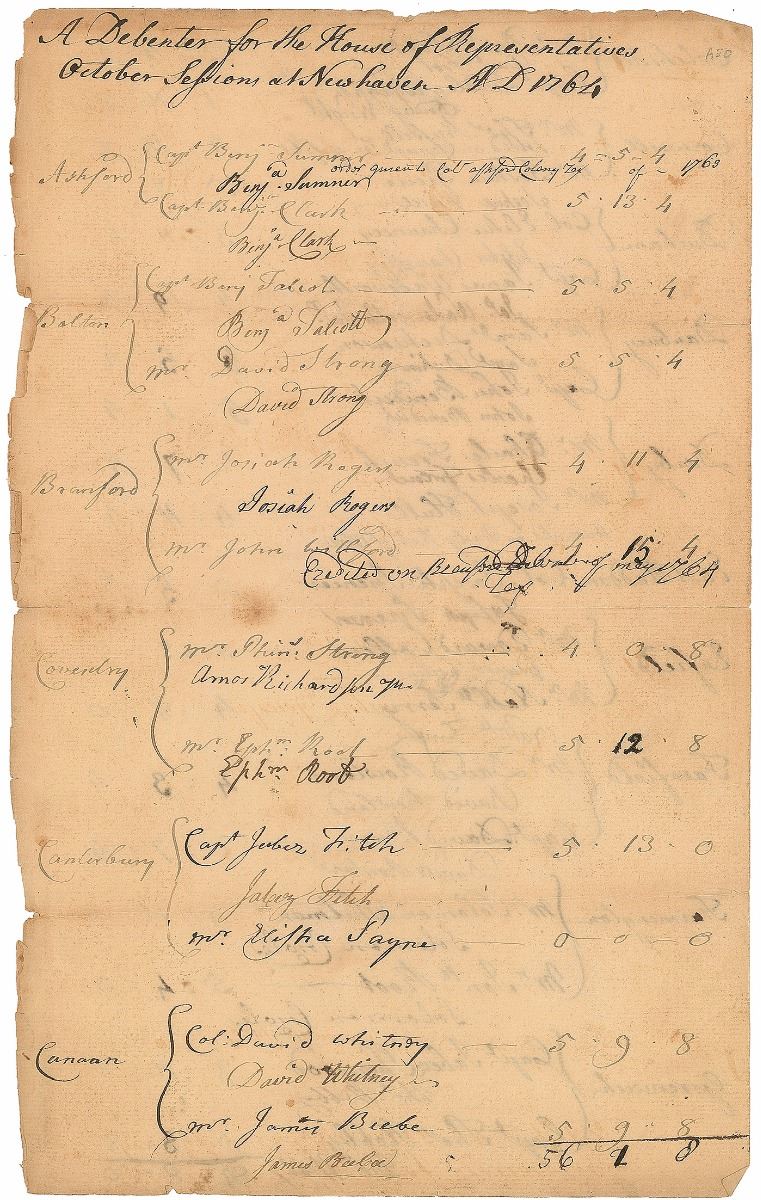 A Debenter for the House of Representatives
October Sessions at Newhaven AD 1764
Ashford
Capt Benjn Sumner 4 - 5 - 4
Benja Sumner order given to Colt ashford Colony Tax of - 1763
Capt Benjn Clark 5 . 13 . 4
Benja Clark
Bolton
Capt Benj Talcot 5 . 5 . 4
Benja Talcott
mr David Strong 5 . 5 . 4
David Strong
Branford
mr Josiah Rogers 4 . 11 . 4
Josiah Rogers
mr John Willford 4 15 4
Credited on Branford of may 1764
Tax
Coventry
mr Phins Strong 4 . 0 . 8
Amos Richardson
mr Ephm Root 5 . 12 . 8
Ephm Root
Canterbury
Capt Jabez Fitch 5 . 13 . 0
Jabez Fitch
mr Elisha Payne 0 - 0 - 0
Canaan
Col: David Whitney 5 . 9 . 8
David Whitney
mr James Beebe 5 . 9 . 8
James Beebe
56 1 8